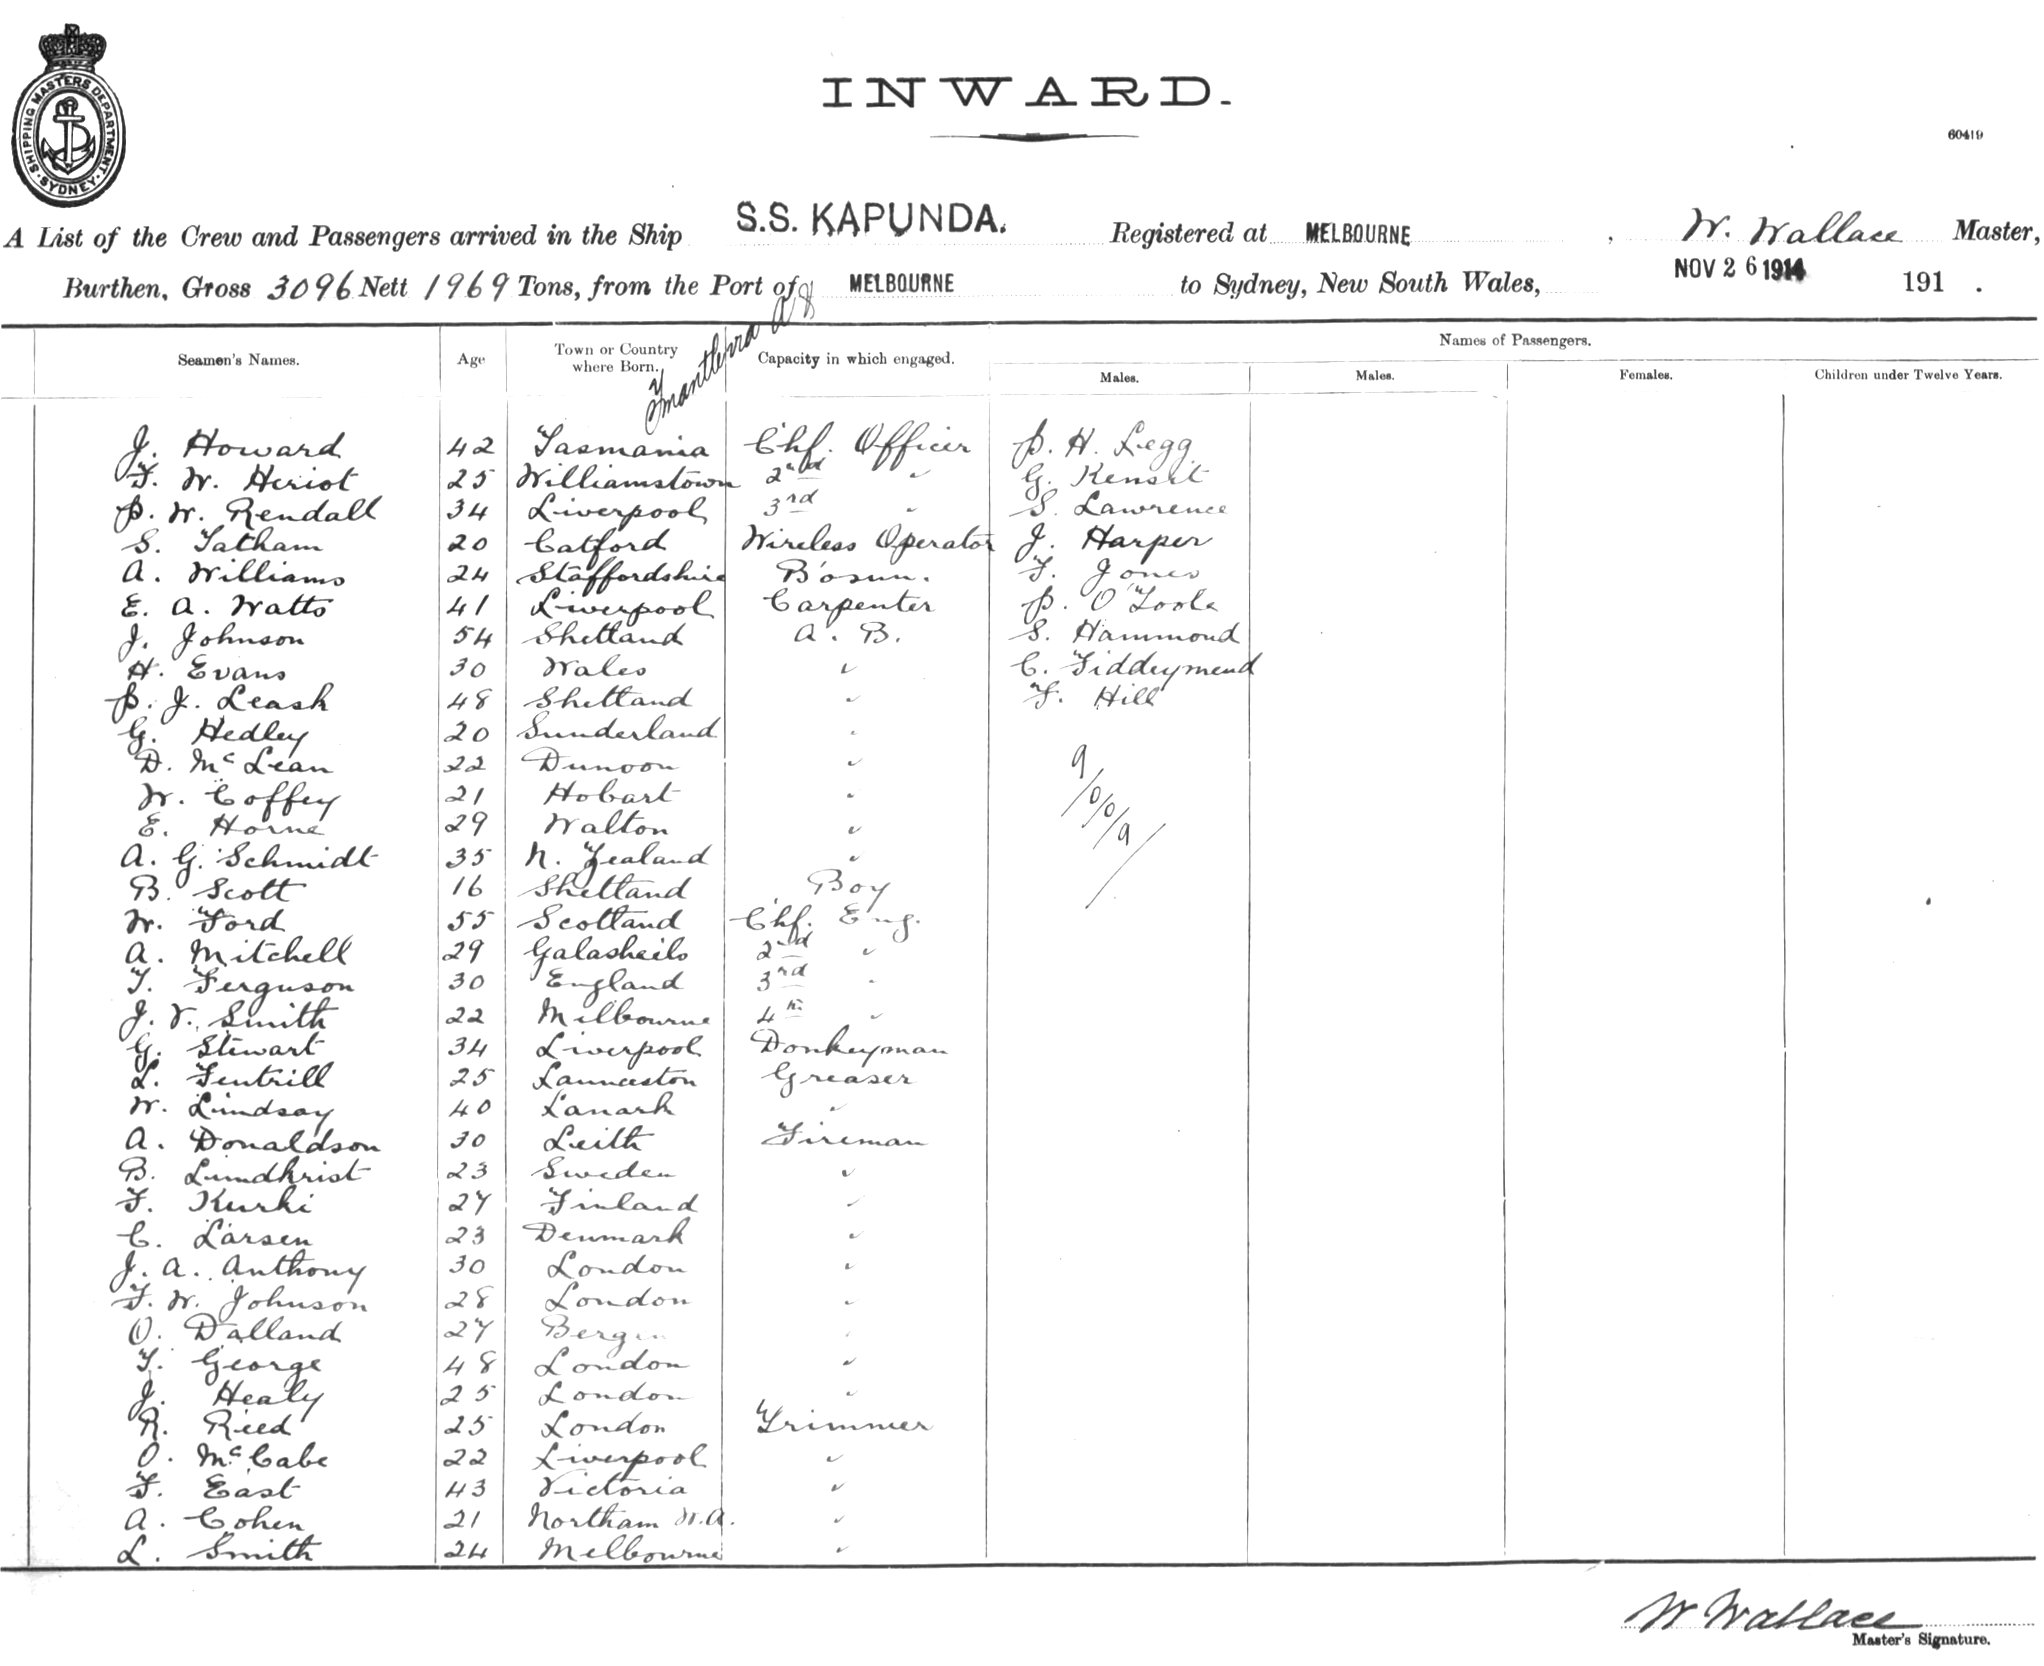 SHIPPING MASTERS DEPARTMENT. SYDNEY.
INWARD.
60419
A List of the Crew and Passengers arrived in the Ship S.S. KAPUNDA. Registered at MELBOURNE, W. Wallace Master,
Burthen, Gross 3096 Nett 1969 Tons, from the Port of MELBOURNE to Sydney, New South Wales, NOV 26 1914 191 .
Seamen's Names. Age Town or Country where Born. Capacity in which engaged. Names of Passengers.
Males. Males. Females. Children under Twelve Years.
J. Howard 42 Tasmania Chf. Officer P. H. Legg
F. W. Heriot 25 Williamstown 2nd " G. Kensit
P. W. Rendall 34 Liverpool 3rd " S. Lawrence
S. Tatham 20 Catford Wireless Operator J. Harper
A. Williams 24 Staffordshire Bosun. F. Jones
E. A. Watts 41 Liverpool Carpenter P. O'Toole
J. Johnson 54 Shetland A. B. S. Hammond
H. Evans 30 Wales " C. Fiddeymend
P. J. Leask 48 Shetland " F. Hill
G. Hedley 20 Sunderland "
D. McLean 22 Dunoon " 9
W. Coffey 21 Hobart " /0/0/9/
E. Horne 29 Walton "
A. G. Schmidt 35 N. Zealand "
B. Scott 16 Shetland Boy
W. Ford 55 Scotland Chf. Eng.
A. Mitchell 29 Galasheils 2nd "
T. Ferguson 30 England 3rd "
J. V. Smith 22 Melbourne 4th "
G. Stewart 34 Liverpool Donkeyman
L. Fentrill 25 Launceston Greaser
W. Lindsay 40 Lanark "
A. Donaldson 30 Leith Fireman
B. Lundkrist 23 Sweden "
F. Kurki 27 Finland "
C. Larsen 23 Denmark "
J. A. Anthony 30 London "
F. W. Johnson 28 London "
O. Dalland 27 Bergen "
T. George 48 London "
J. Healy 25 London "
R. Reed 25 London Trimmer
O. McCabe 22 Liverpool "
F. East 43 Victoria "
A. Cohen 21 Northam W.A. "
L. Smith 24 Melbourne "
W Wallace
Master's Signature.